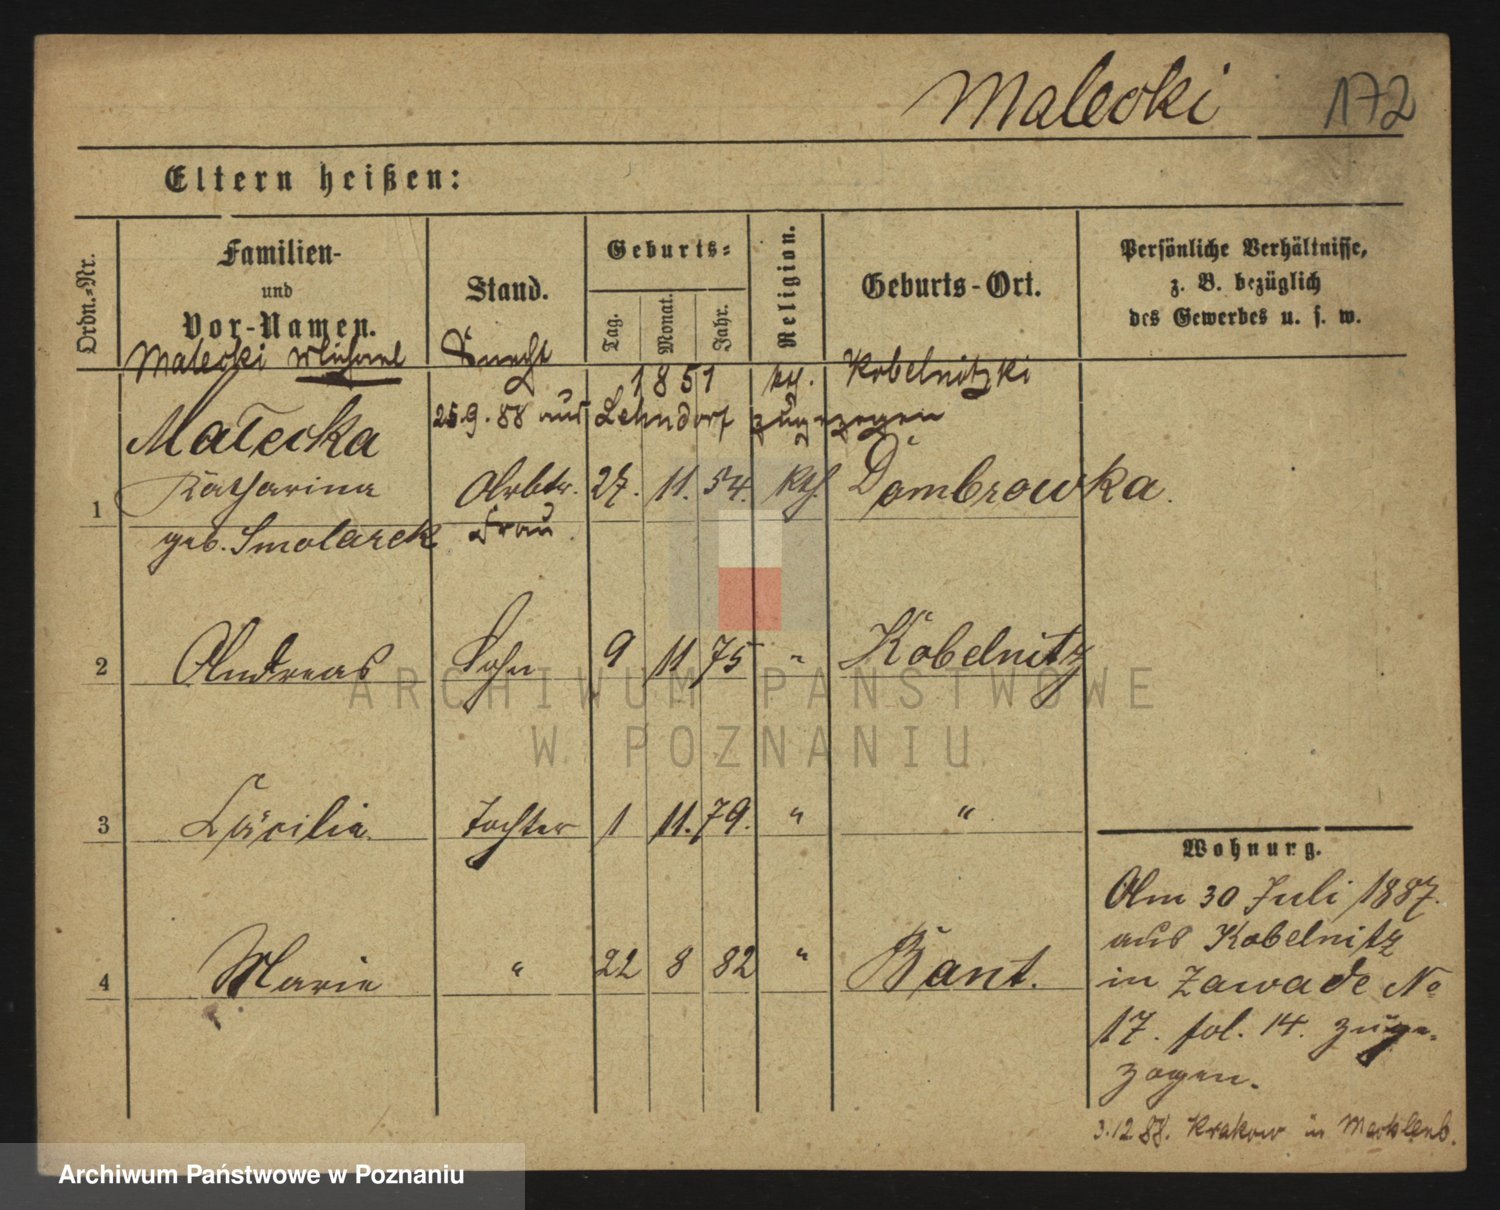 Malecki 172
Eltern heißen:
Ordn.-Nr.
Familien-
und
Vor-Namen.
Stand.
Geburts-
Tag.
Monat.
Jahr.
Religion.
Geburts-Ort.
Persönliche Verhältnisse,
z. B. bezüglich
des Gewerbes u. s. w.
Malecki Michael Knecht 1851 kth. Kobelnitzki
25.9.88 aus Lehndorf zugezogen
Małecka
1 Katharina Arbtr. 27. 11. 54. kth. Dombrowka.
geb. Smolarek Frau
2 Andreas Sohn 9 11 75 " Kobelnitz
3 Cäcilie. Tochter 1 11. 79. " "
4 Marie " 22 8 82 " Bant.
Wohnung.
Am 30 Juli 1887.
aus Kobelnitz
in Zawade No
17. fol. 14. zuge-
zogen.
3.12 88. Krakow in Mecklenb.
ARCHIWUM PAŃSTWOWE
W POZNANIU
Archiwum Państwowe w Poznaniu